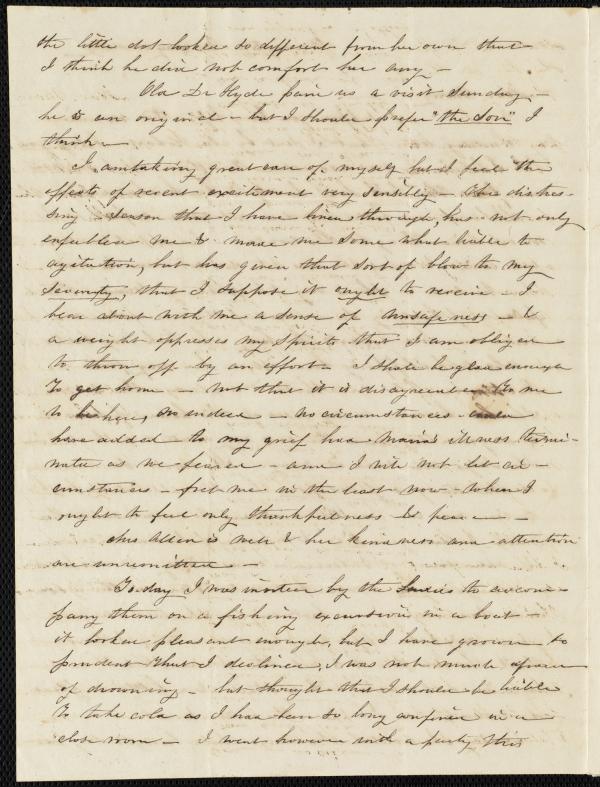 the little dot looked so different from her own that
I think he did not comfort her any —
Old Dr Hyde paid us a visit Sunday —
he is an original — but I should prefer "the Son" I
think —
I am taking great care of myself but I feel the
effects of recent excitement very sensibly — The distres-
sing season that I have lived through, has not only
enfeebled me & made me some what liable to
agitation, but has given that sort of blow to my
security, that I suppose it ought to receive — I
bear about with me a sense of unsafeness — &
a weight oppresses my spirits that I am obliged
to throw off by an effort — I shall be glad enough
to get home — not that it is disagreeable to me
to be here, no indeed — no circumstances could
have added to my grief had Maria's illness termi-
nated as we feared — and I will not let cir-
cumstances — fret me in the least now — when I
ought to feel only thankfulness & peace —
Mrs Allen is well & her kindness and attention
are unremitted —
To day I was invited by the Ladies to accom-
pany them on a fishing excursion in a boat —
it looked pleasant enough, but I have grown so
prudent that I declined, I was not much afraid
of drowning — but thought that I should be liable
to take cold as I had been so long confined in a
close room — I went however with a party this